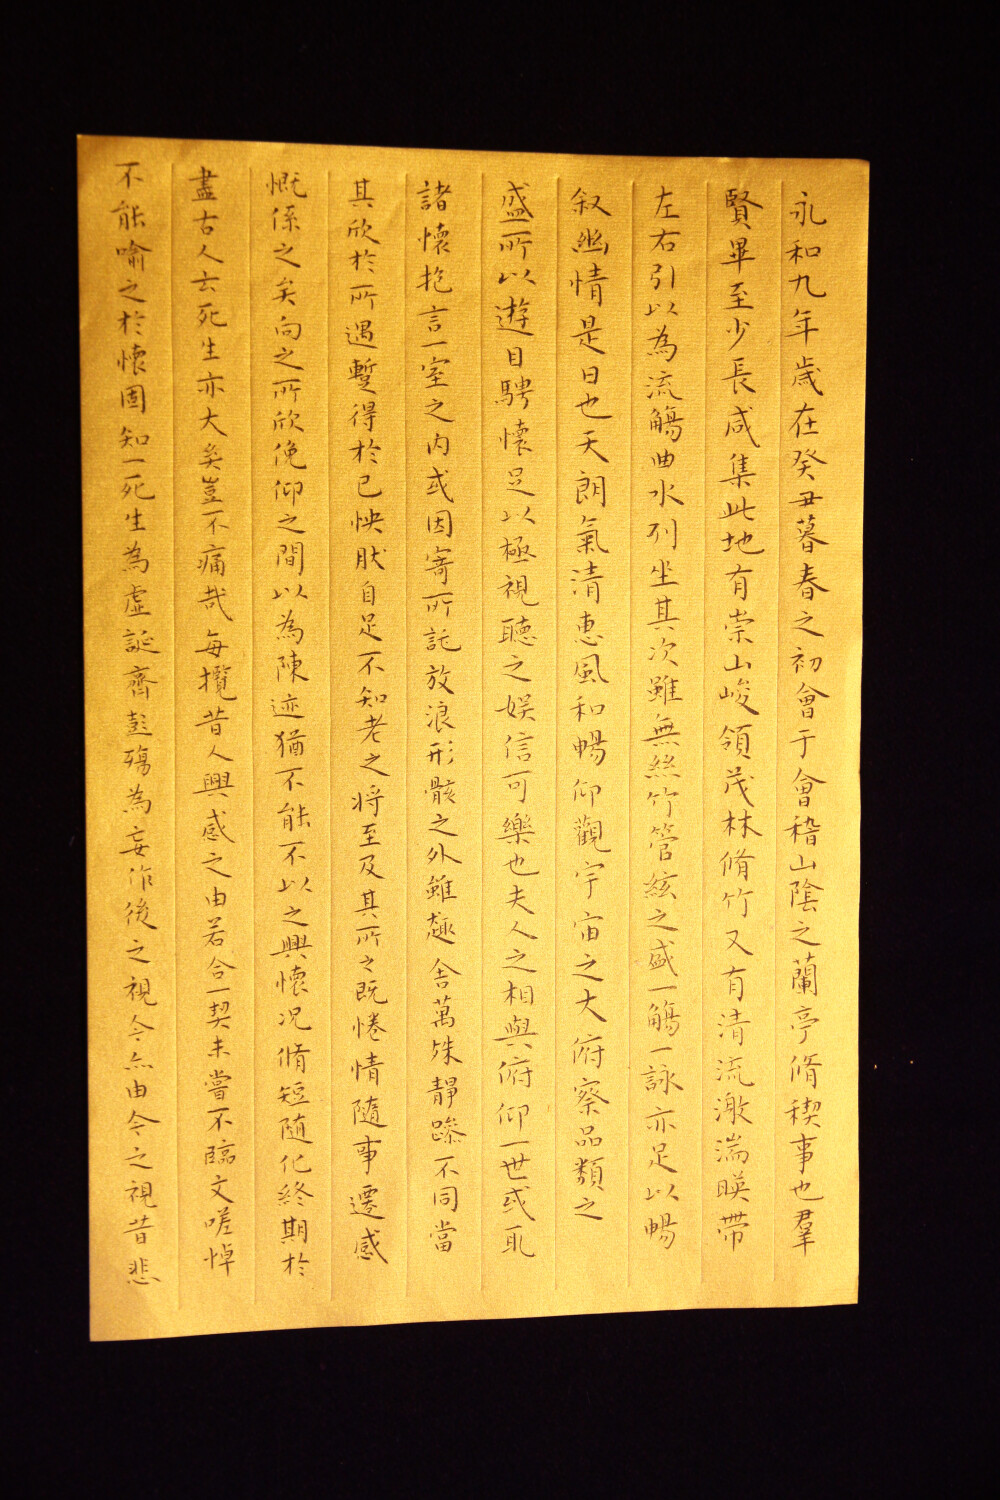 永和九年歲在癸丑暮春之初會于會稽山陰之蘭亭脩稧事也羣
賢畢至少長咸集此地有崇山峻領茂林脩竹又有清流激湍暎帶
左右引以為流觴曲水列坐其次雖無絲竹管絃之盛一觴一詠亦足以暢
叙幽情是日也天朗氣清惠風和暢仰觀宇宙之大俯察品類之
盛所以遊目騁懷足以極視聽之娛信可樂也夫人之相與俯仰一世或取
諸懷抱言一室之內或因寄所託放浪形骸之外雖趣舍萬殊靜躁不同當
其欣於所遇暫得於己怏然自足不知老之將至及其所之既惓情隨事遷感
慨係之矣向之所欣俛仰之間以為陳迹猶不能不以之興懷況脩短隨化終期於
盡古人云死生亦大矣豈不痛哉每攬昔人興感之由若合一契未嘗不臨文嗟悼
不能喻之於懷固知一死生為虛誕齊彭殤為妄作後之視今亦由今之視昔悲